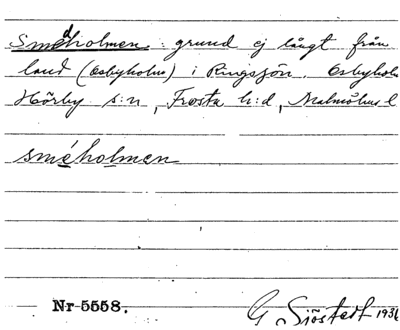 Smedholmen: grund ej långt från
land (Osbyholm) i Ringsjön. Osbyholm
Hörby s:n, Frosta h:d, Malmöhus l
sméholmen
Nr 5558.
G Sjöstedt 1936